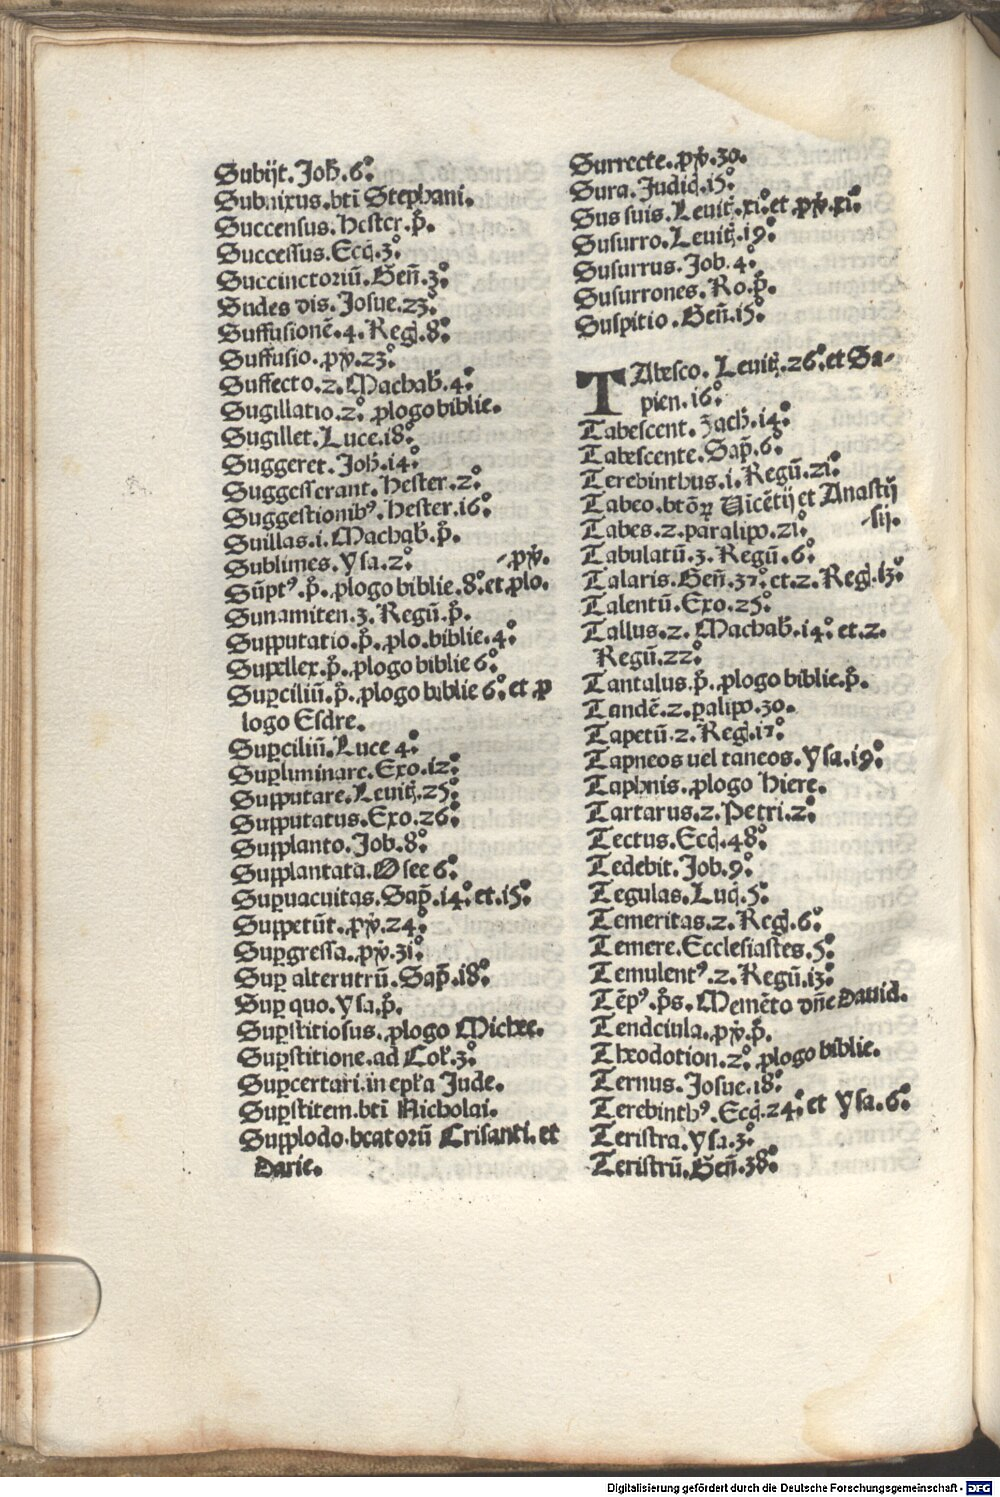 Subijt.Joh̄.6°.
Subnixus.bt̄i Stephani.
Succensus.Hester.p̊.
Successus.Ecc̄.3°.
Succinctoriū.Gen̄.3°.
Sudes dis.Josue.23°.
Suffusionē.4.Reḡ.8°.
Suffusio.p̱v̊.23°.
Suffecto.2.Machab̄.4°.
Sugillatio.2°.ꝓlogo biblie.
Sugillet.Luce.18°.
Suggeret.Joh̄.14°.
Suggesserant.Hester.2°.
Suggestionibꝰ.Hester.16°.
Suillas.i.Machab̄.p̊.
Sublimes.Ysa.2°.
Sūptꝰ.p̊.ꝓlogo biblie.8°.et ꝓlo.
-p̱v̊.
Sunamiten.3.Regū.p̊.
Supputatio.p̊.ꝓlo.biblie.4°.
Supellex.p̊.ꝓlogo biblie 6°.
Suꝑciliū.p̊.ꝓlogo biblie 6°.et ꝓ
logo Esdre.
Suꝑciliū.Luce 4°.
Suꝑliminare.Exo.12°.
Supputare.Levit̄.25°.
Supputatus.Exo.26°.
Supplanto.Job.8°.
Supplantata.Osee 6°.
Suꝑuacuitas.Sap̄.14°.et.15°.
Suppetūt.p̱v̊.24°.
Suꝑgressa.p̱v̊.31°.
Suꝑ alterutrū.Sap̄.18°.
Suꝑ quo.Ysa.p̊.
Suꝑstitiosus.ꝓlogo Michee.
Suꝑstitione.ad Col̄.3°.
Suꝑcertari.in epl̄a Jude.
Suꝑstitem.bt̄i Nicholai.
Supplodo.beatorū Crisanti.et
Darie.
Surrecte.p̱v̊.30.
Sura.Judic̄.15°.
Sus suis.Levit̄.xi°.et p̱v̊.xi°.
Susurro.Levit̄.19°.
Susurrus.Job.4°.
Susurrones.Ro.p̊.
Suspitio.Gen̄.15°.
TAbesco.Levit̄.26°.et Sa-
pien.16°.
Tabescent.Zach̄.14°.
Tabescente.Sap̄.6°.
Terebinthus.i.Regū.21°.
Tabeo.btōꝝ Uicētij et Anastij
-sij.
Tabes.2.paralipo.21°.
Tabulatū.3.Regū.6°.
Talaris.Gen̄.37°.et.2.Reḡ.13°.
Talentū.Exo.25°.
Tallus.2.Machab̄.14°.et.2.
Regū.22°.
Tantalus.p̊.ꝓlogo biblie.p̊.
Tandē.2.ꝑalipo.30.
Tapetū.2.Reḡ.17°.
Tapneos uel taneos.Ysa.19°.
Taphnis.ꝓlogo Hiere.
Tartarus.2.Petri.2°.
Tectus.Ecc̄.48°.
Tedebit.Job.9°.
Tegulas.Luc̄.5°.
Temeritas.2.Reḡ.6°.
Temere.Ecclesiastes.5°.
Temulentꝰ.2.Regū.13°.
Tēpꝰ.p̄s.Memēto dn̄e Dauid.
Tendciula.p̱v̊.p̊.
Theodotion.2°.ꝓlogo biblie.
Ternus.Josue.18°.
Terebinthꝰ.Ecc̄.24°.et Ysa.6°.
Teristra.Ysa.3°.
Teristrū.Gen̄.38°.
Digitalisierung gefördert durch die Deutsche Forschungsgemeinschaft - DFG